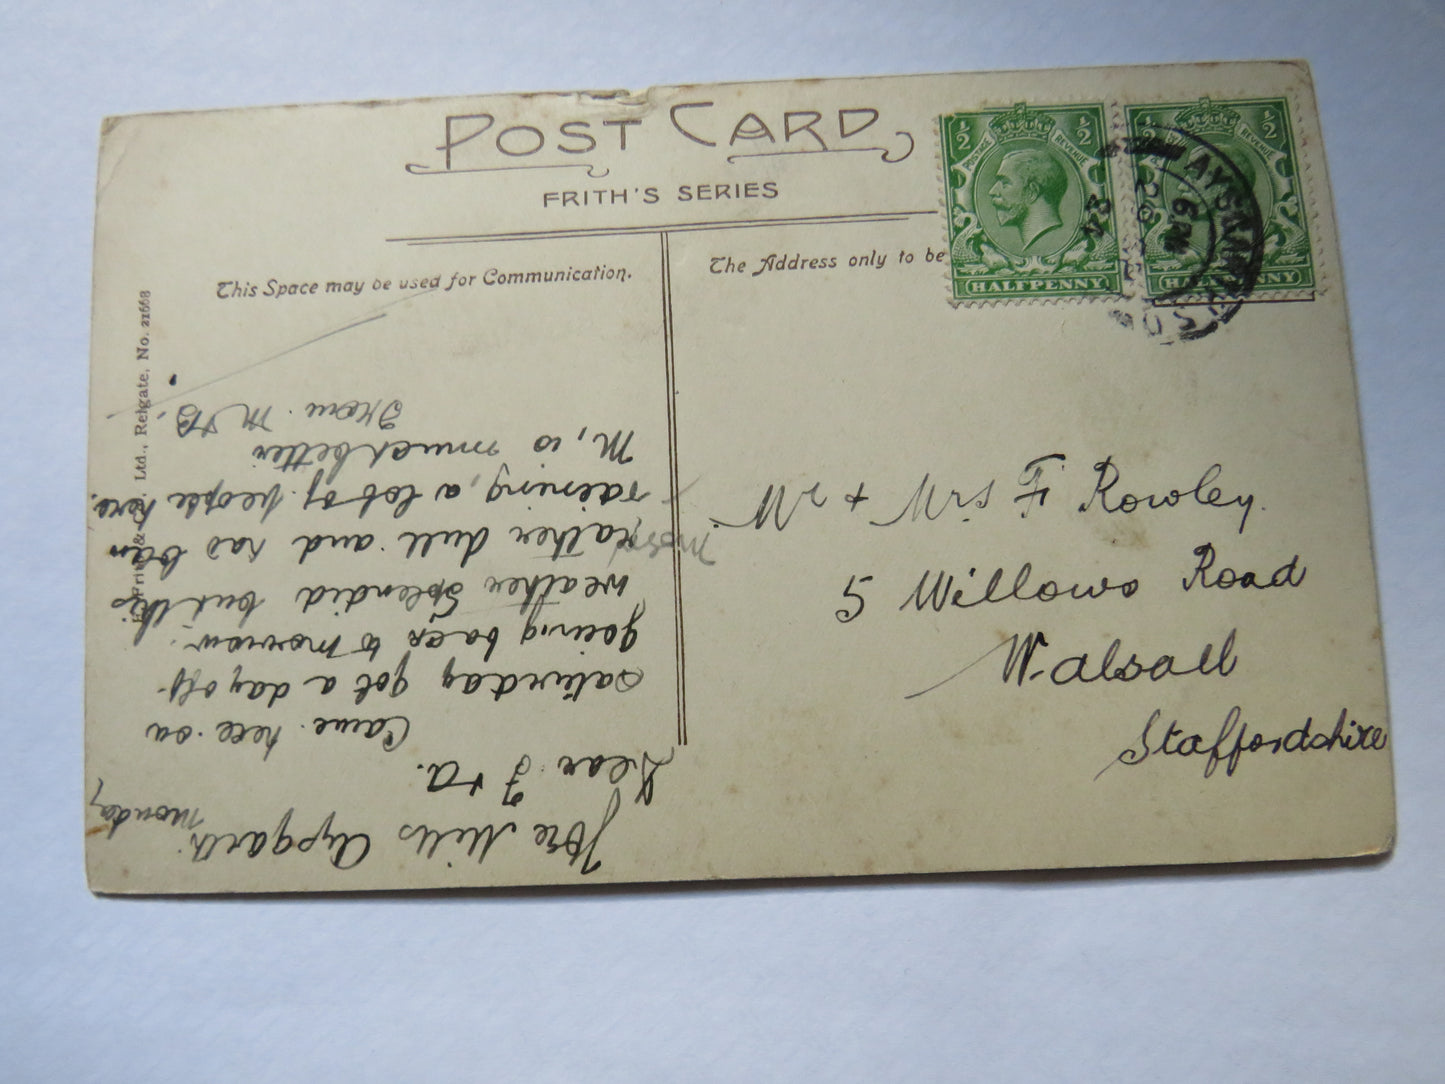 POST CARD
FRITH'S SERIES
This Space may be used for Communication.
The Address only to be
Ltd., Reigate, No. 21668
½ ½
POSTAGE REVENUE
HALFPENNY
½ ½
REVENUE
HALFPENNY
AYSGARTH
6 PM
24
Mr & Mrs F. Rowley.
5 Willows Road
Walsall
Staffordshire
Mills Aysgarth
Monday
Dear F & A.
Came here on
saturday got a day off
going back to morrow.
weather splendid but this
rather dull and has been
raening, a lot of people here.
M, is much better
From M & B.